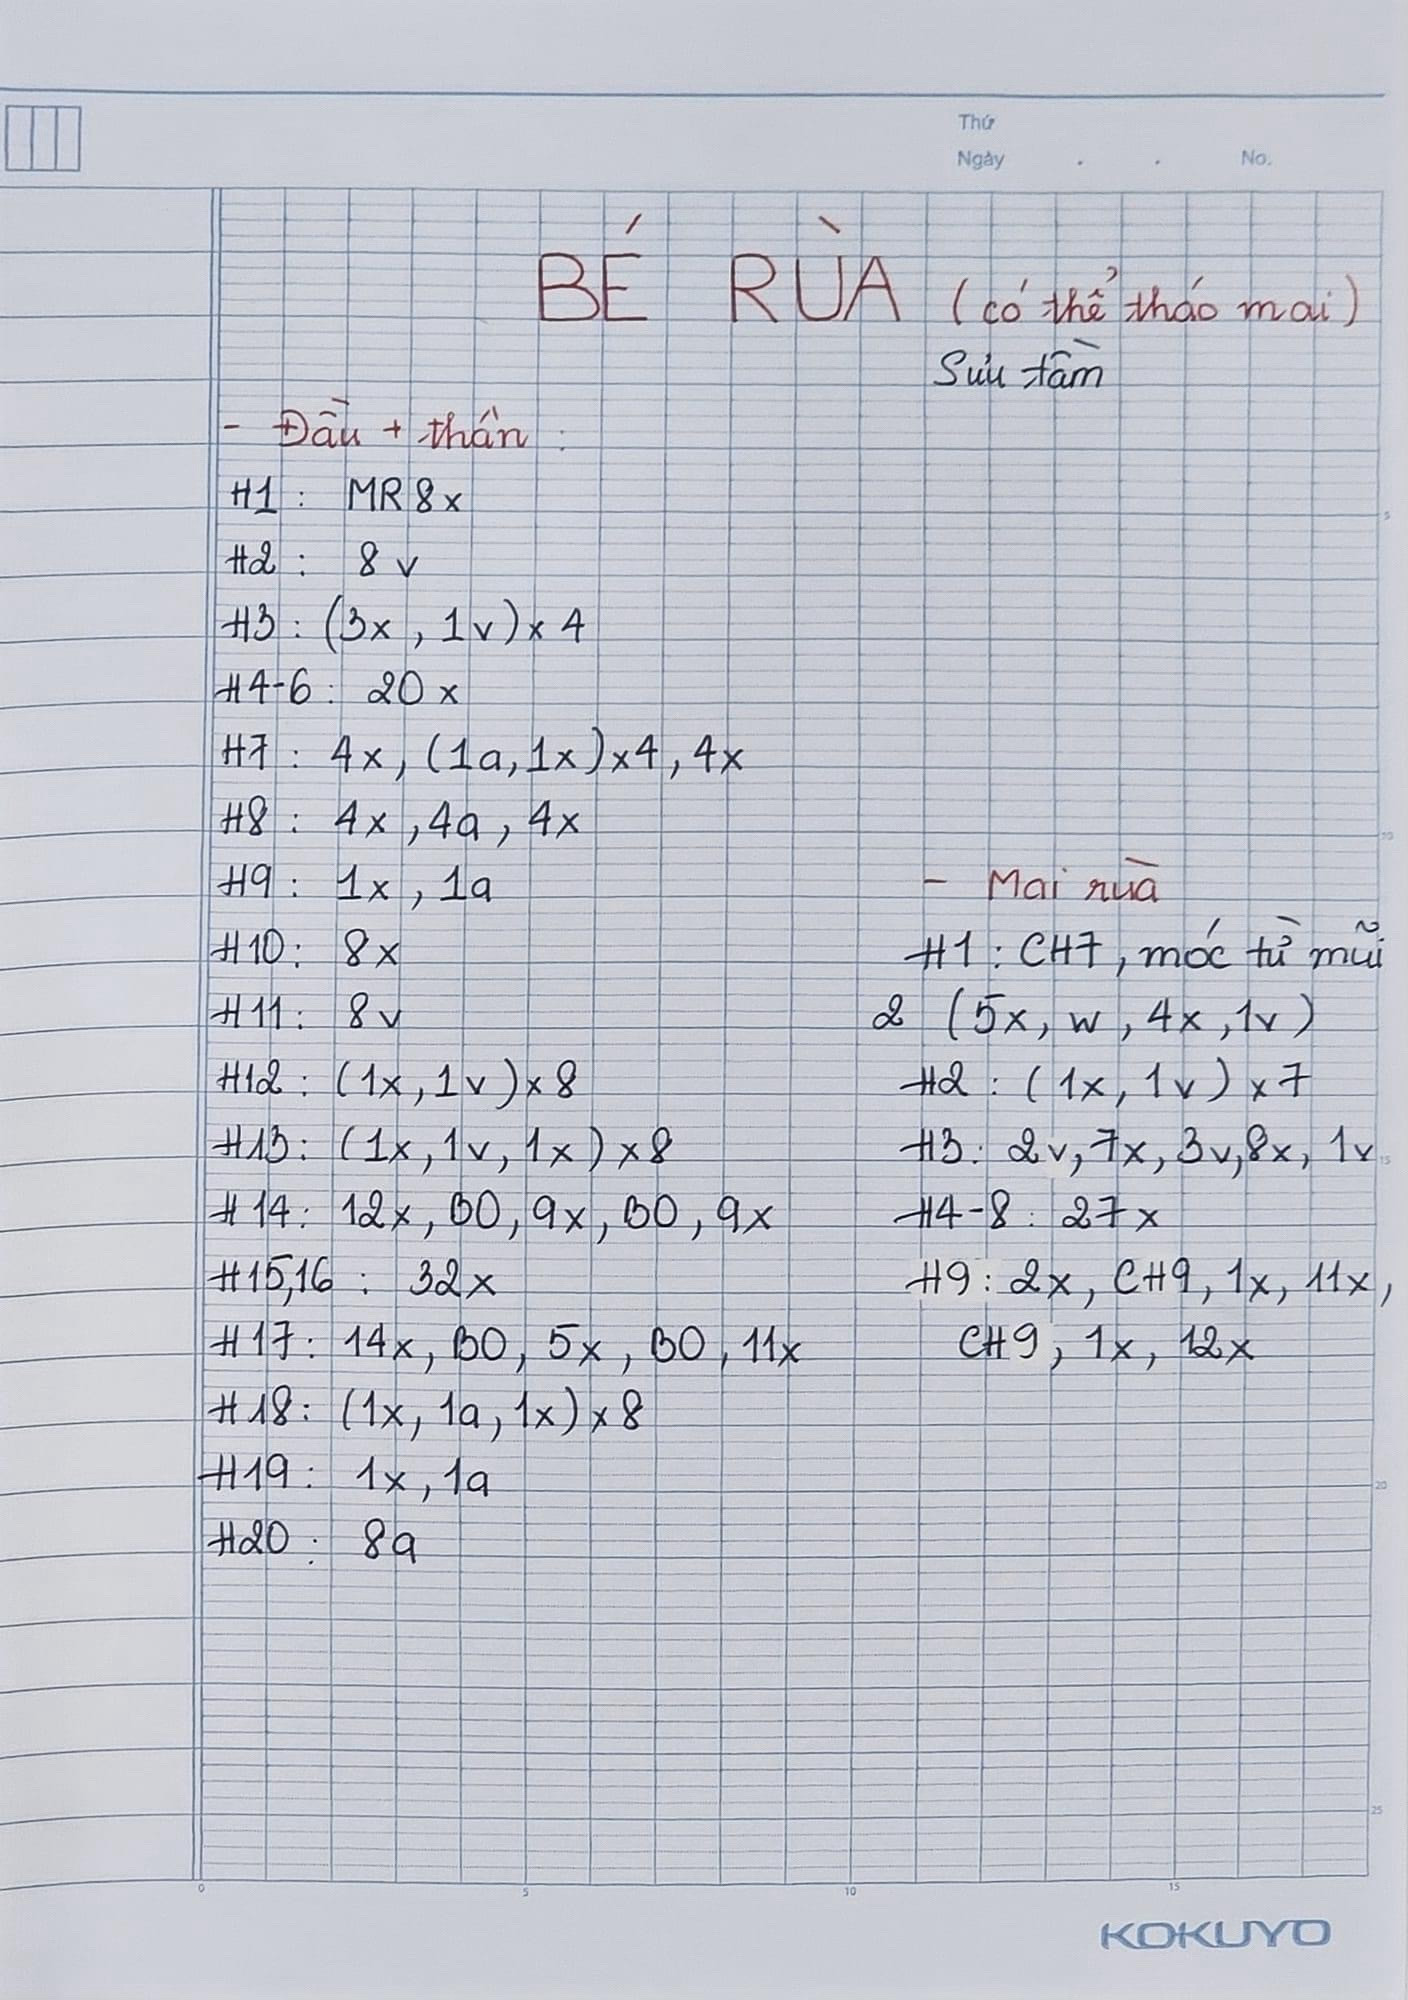 Thứ
Ngày . . No.
BÉ RÙA (có thể tháo mai)
Sưu tầm
- Đầu + thân :
H1 : MR 8x
H2 : 8v
H3 : (3x, 1v) x 4
H4-6 : 20x
H7 : 4x, (1a, 1x) x4, 4x
H8 : 4x, 4a, 4x
H9 : 1x, 1a
H10 : 8x
H11 : 8v
H12 : (1x, 1v) x 8
H13 : (1x, 1v, 1x) x 8
H14 : 12x, BO, 9x, BO, 9x
H15,16 : 32x
H17 : 14x, BO, 5x, BO, 11x
H18 : (1x, 1a, 1x) x 8
H19 : 1x, 1a
H20 : 8a
- Mai rùa
H1 : CH7, móc từ mũi
2 (5x, w, 4x, 1v)
H2 : (1x, 1v) x 7
H3 : 2v, 7x, 3v, 8x, 1v
H4-8 : 27x
H9 : 2x, CH9, 1x, 11x,
CH9, 1x, 12x
5
10
15
20
25
0 5 10 15
KOKUYO